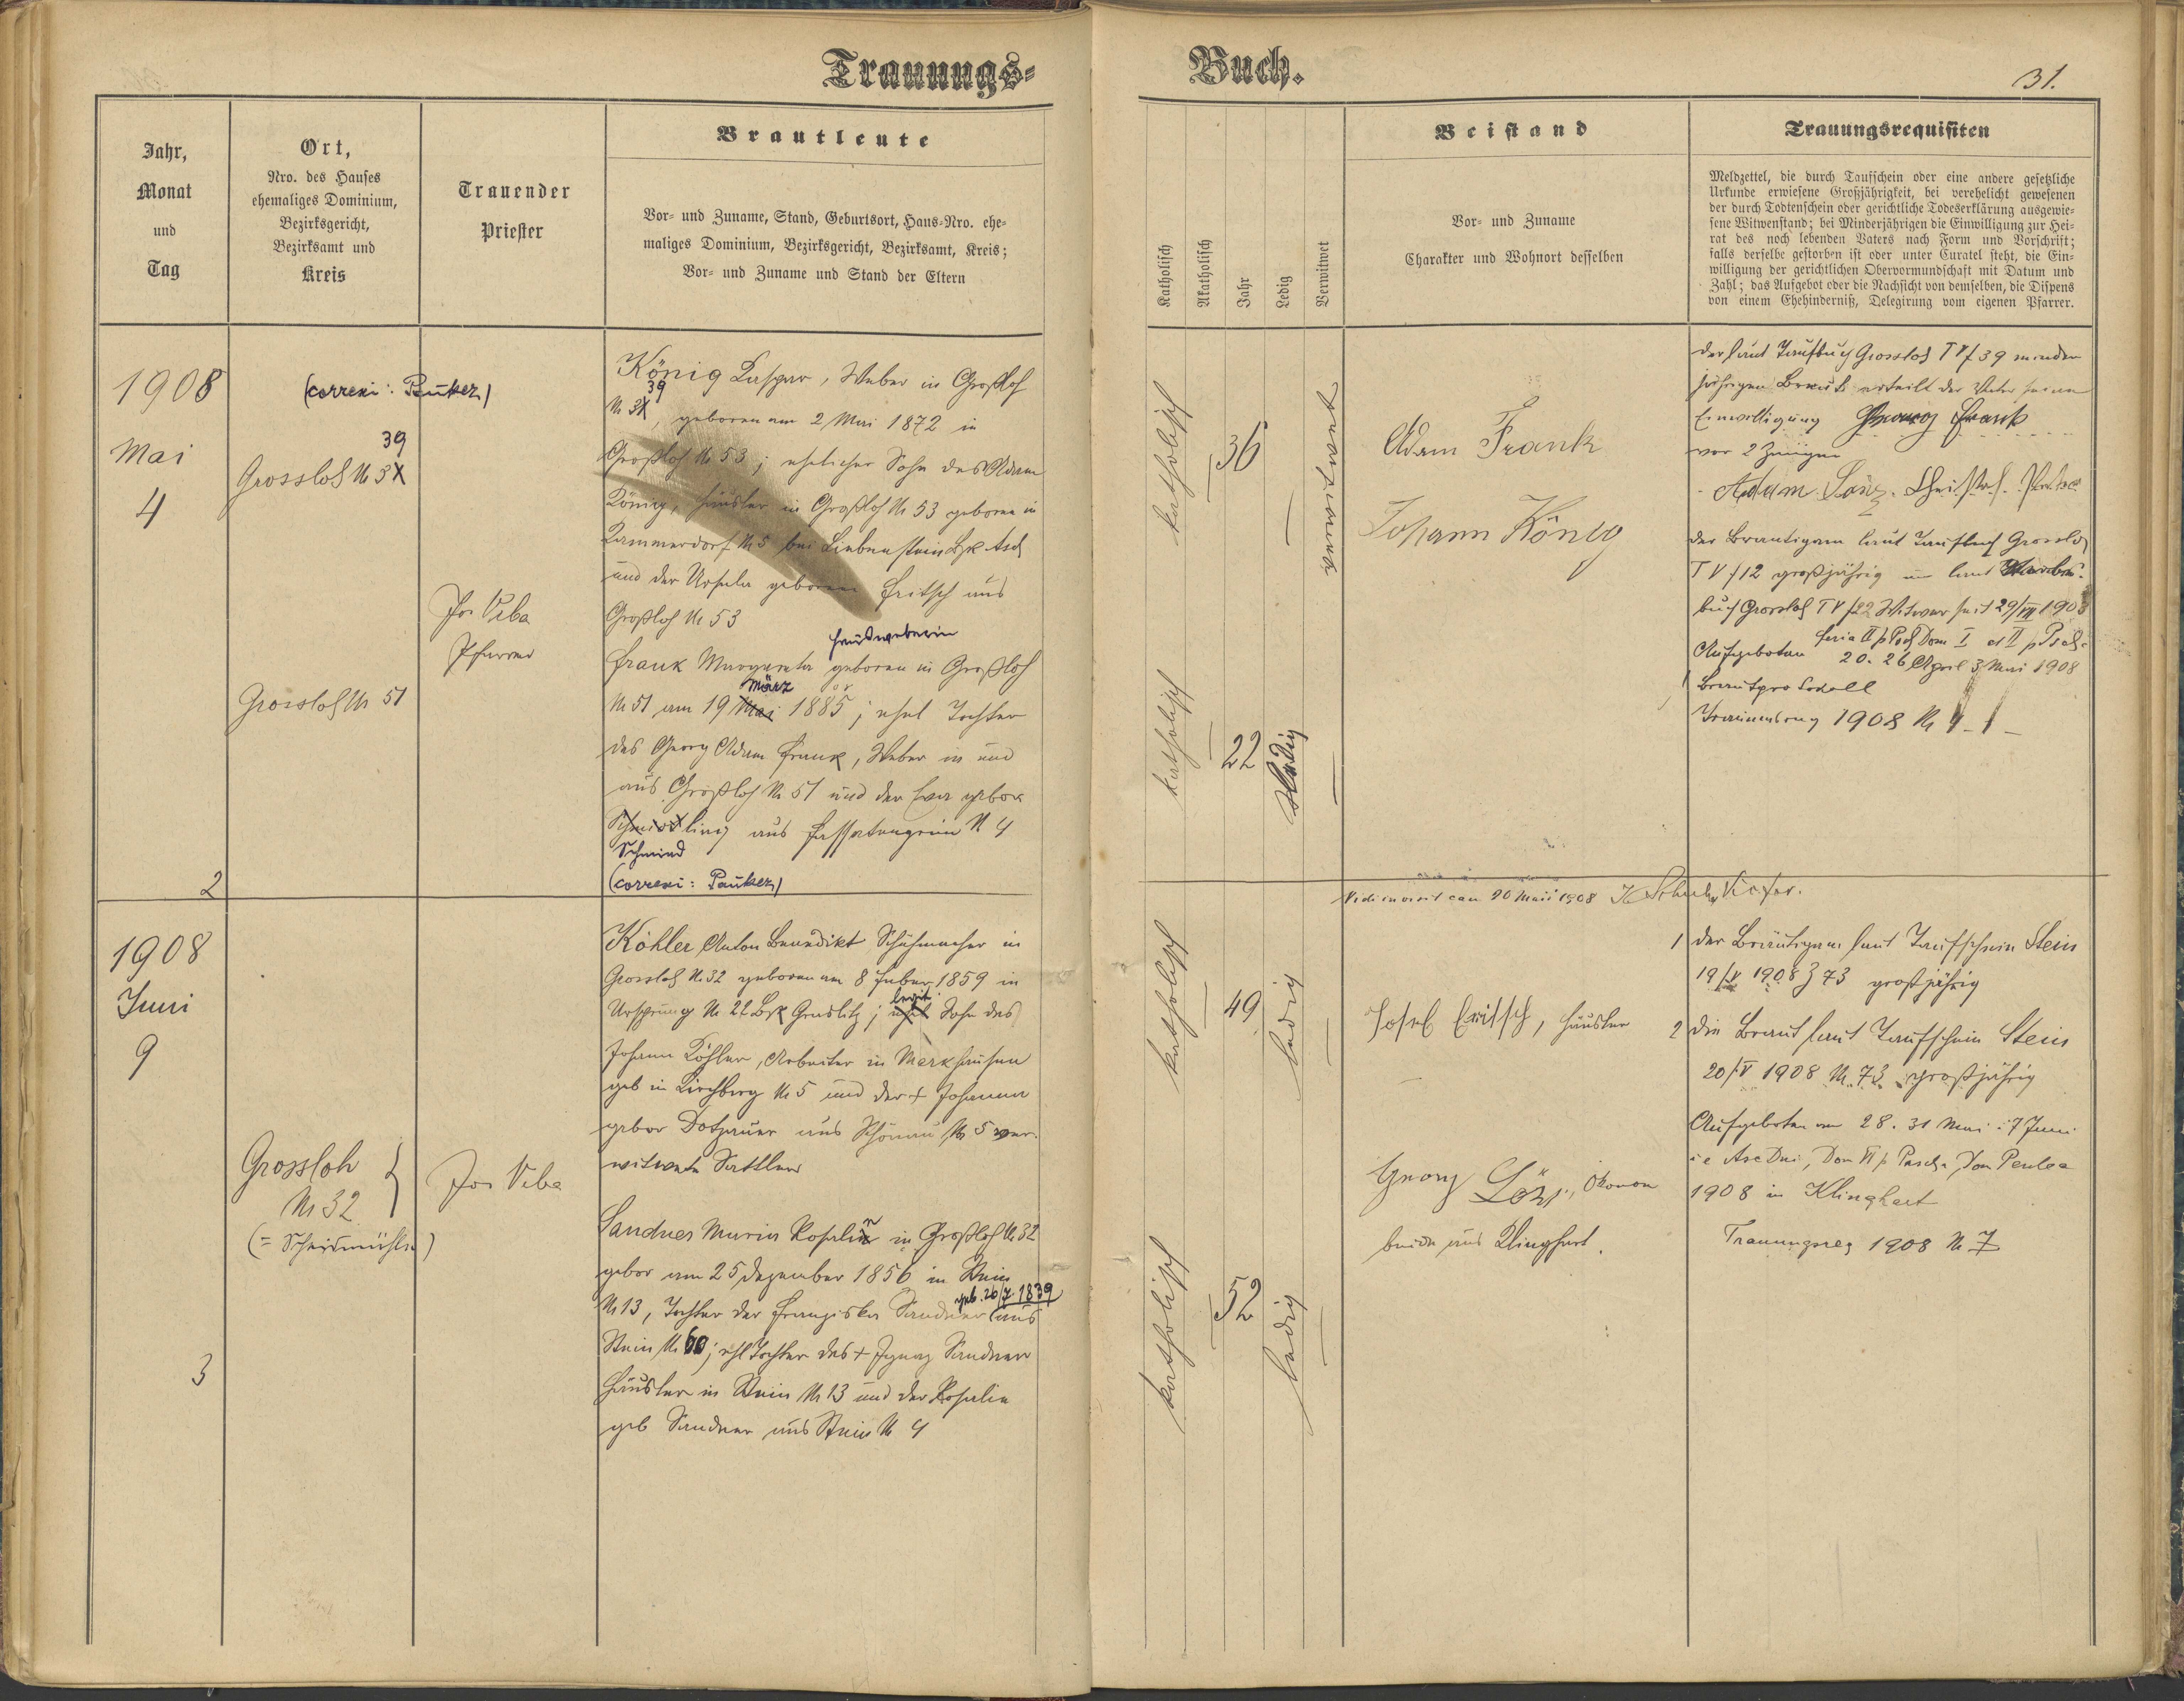 Trauungs-
Buch.
31.
Jahr,
Monat
und
Tag
Ort,
Nro. des Hauses
ehemaliges Dominium,
Bezirksgericht,
Bezirksamt und
Kreis
Trauender
Priester
Brautleute
Vor- und Zuname, Stand, Geburtsort, Haus-Nro. ehe-
maliges Dominium, Bezirksgericht, Bezirksamt, Kreis;
Vor- und Zuname und Stand der Eltern
Katholisch
Akatholisch
Jahr
Ledig
Verwitwet
Beistand
Vor- und Zuname
Charakter und Wohnort desselben
Trauungsrequisiten
Meldzettel, die durch Taufschein oder eine andere gesetzliche
Urkunde erwiesene Großjährigkeit, bei verehelicht gewesenen
der durch Todtenschein oder gerichtliche Todeserklärung ausgewie-
sene Witwenstand; bei Minderjährigen die Einwilligung zur Hei-
rat des noch lebenden Vaters nach Form und Vorschrift;
falls derselbe gestorben ist oder unter Curatel steht, die Ein-
willigung der gerichtlichen Obervormundschaft mit Datum und
Zahl; das Aufgebot oder die Nachsicht von demselben, die Dispens
von einem Ehehinderniß, Delegirung vom eigenen Pfarrer.
1908
Mai
4
2
(correxi: Pauker)
39
Grossloh N 3X
Grossloh N 51
Jos Veba
Pfarrer
König Kaspar, Weber in Großloh
39
N 3X, geboren am 2 Mai 1872 in
Großloh N 53; ehelicher Sohn des Adam
König, Häusler in Großloh N 53 geboren in
Kammerdorf N 5 bei Liebenstein Bzk Asch
und der Ursula geboren Fritsch aus
Großloh N 53
Handweberin
Frank Margareta geboren in Großloh
März
N 51 am 19 Mai 1885; ehel Tochter
des Georg Adam Frank, Weber in und
aus Großloh N 51 und der Eva gebor
ling aus Fassatengrün N 4
Schmied
(correxi: Pauker)
katholisch
36
verwitwet
katholisch
22
ledig
Adam Frank
Johann König
der laut Taufbuch Grossloh T V/39 minder
jährigen Braut erteilt der Vater seine
Einwilligung Georg Frank
vor 2 Zeugen
Adam
der Bräutigam laut Taufbuch Grossloh
T V/12 großjährig u laut Sterbe-
buch Grossloh T V/22 Witwer seit 29/VII 190
Aufgeboten feria II p Pasch Dom I et II p Pasch
20. 26 April 3 Mai 1908
Brautprotokoll
Trauungsreg 1908 N 4
Vidi in visit can 20 Maii 1908
1908
Juni
9
3
Grossloh
N 32
(= Schneidmühle)
Jos Veba
Köhler Anton Benedikt Schuhmacher in
Grossloh N 32 geboren am 8 Feber 1859 in
legit.
Ursprung N 22 Bzk Graslitz; ehel Sohn des
Johann Köhler, Arbeiter in Markhausen
geb in Kirchberg N 5 und der + Johanna
gebor Dotzauer aus Schönau N 5 ver-
witwete Sattler
Sandner Maria Rosalia in Großloh N 32
gebor am 25 Dezember 1856 in Stein
geb. 26/7 1839
N 13, Tochter der Franziska Sandner aus
Stein N 60; ehl Tochter des + Ignaz Sandner
Häusler in Stein N 13 und der Rosalia
geb Sandner aus Stein N 4
katholisch
49
ledig
katholisch
52
ledig
Josef Fritsch, Häusler
Georg Lenz, Ökonom
beide aus Klinghart.
1 der Bräutigam laut Taufschein Stein
19/V 1908 Z 73 großjährig
2 die Braut laut Taufschein Stein
20/V 1908 N 73 großjährig
Aufgeboten am 28. 31 Mai i 7 Juni
i e Asc Dni, Dom VI p Pasch, Dom Pentec
1908 in Klinghart
Trauungsreg 1908 N 7